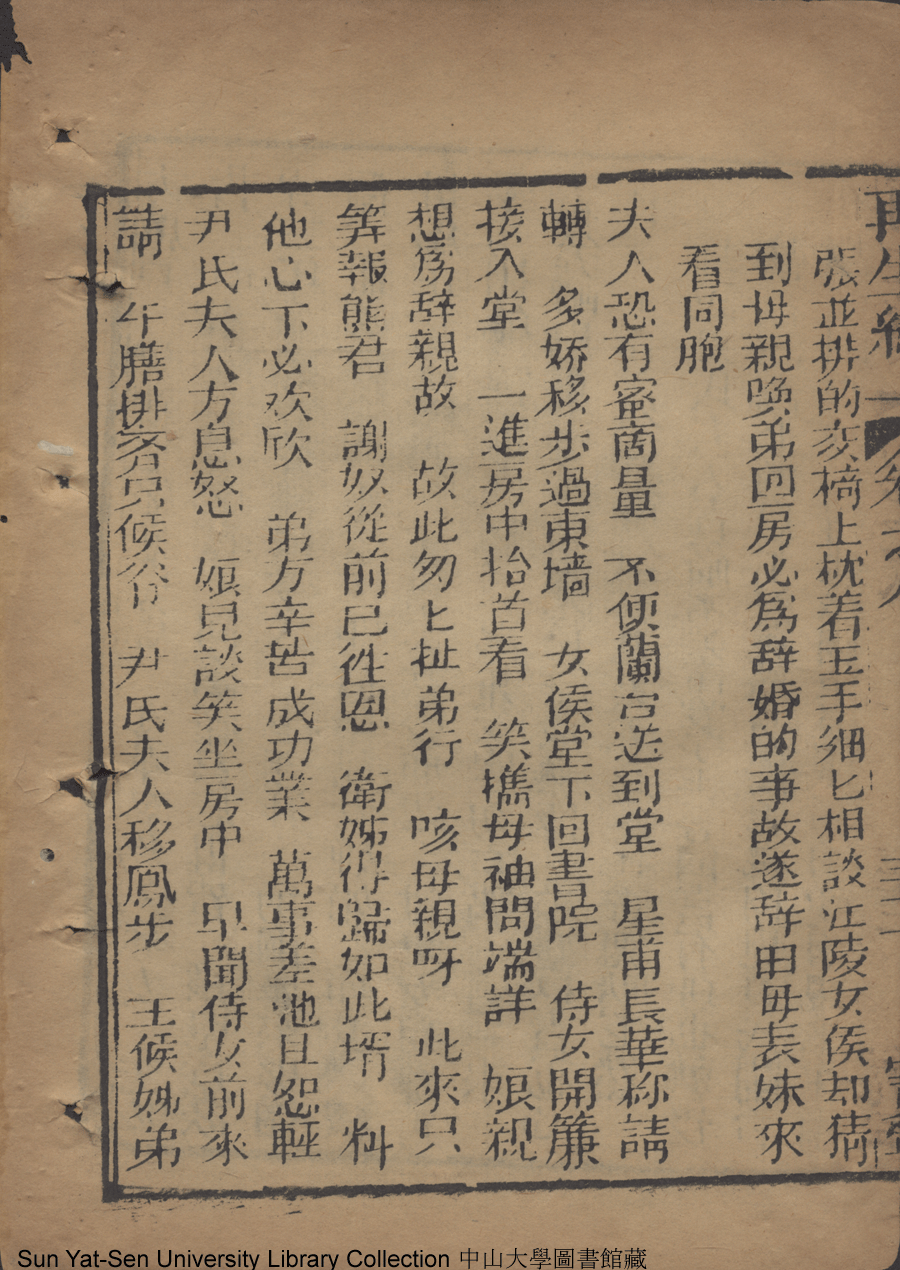 再生緣
卷六
張並排的交椅上枕着玉手細匕相談江陵女侯却猜
到母親喚弟回房必爲辞婚的事故遂辞田母表妹來
看同胞
夫人恐有蜜啇量 不便蘭台送到堂 星甫長華称請
轉 多娇移步過東墙 女侯堂下回書院 侍女開簾
接入堂 一進房中抬首看 笑擕母袖問端詳 娘親
想爲辞親故 故此匆匕扯弟行 咳母親呀 此來只
筭報熊君 謝奴從前已徃恩 衛姊得歸如此壻 料
他心下必欢欣 弟方辛苦成功業 萬事差池且恕輕
尹氏夫人方息怒 娘兒談笑坐房中 早聞侍女前來
請 午膳排齐只候爷 尹氏夫人移鳳步 王候姊弟
Sun Yat-Sen University Library Collection 中山大學圖書館藏